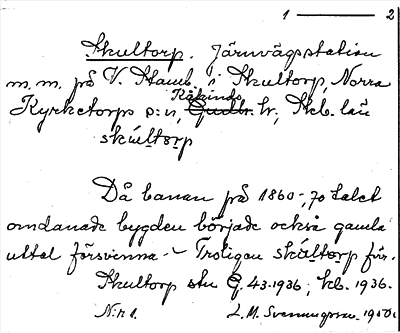 1 ——— 2
Skultorp. Järnvägsstation
m.m. på V. Stamb. i Skultorp, Norra
Kåkinds
Kyrketorps s:n, Gudh. hr, Skb. län
skúltòrp
Då banan på 1860-, 70 talet
omdanade bygden började också gamla
uttal försvinna. - Troligen skúltòrp för.
Skultorp stn G. 43. 1936; kb. 1936.
N:r 1. L. M. Svennungsson. 1950.